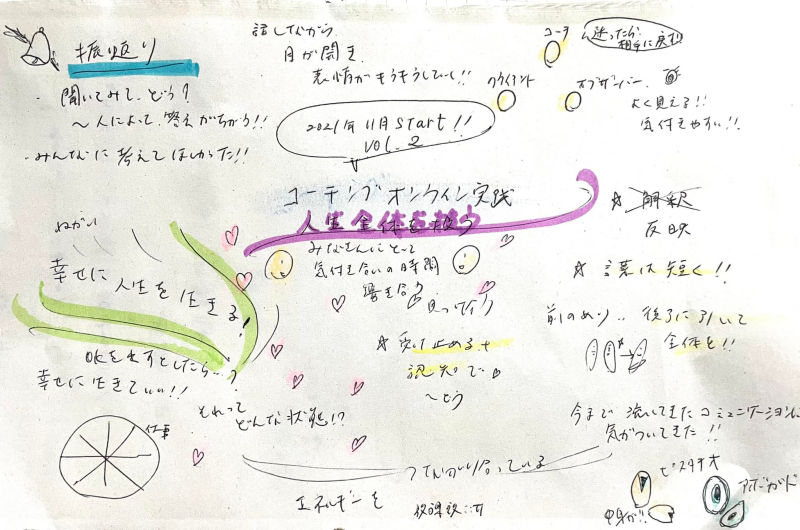 振り返り
・聞いてみて、どう?
〜人によって、答えがちがう!!
・みんなに考えてほしかった!!
話しながら
目が開き
表情がもうもうしていく!!
コーチ
迷ったら
相手に戻す
クライアント
オブザーバー
よく見える!!
気付きやすい!!
2021年11月start!!
VOL.2
コーチングオンライン実践
人生全体を扱う
みなさんにとって
気付き合いの時間
響き合う
☆受け止める+
認知で
〜どう
☆解釈
反映
☆言葉は短く!!
前のめり..後ろに引いて
全体を!!
ねがい
幸せに人生を生きる!
OKを出すとしたら…?
幸せに生きていい!!
それって
どんな状態!?
仕事
今まで流してきたコミュニケーションに
気がついてきた!!
つながり合っている
エネルギーを
ピスタチオ
アボガド
中身が!!